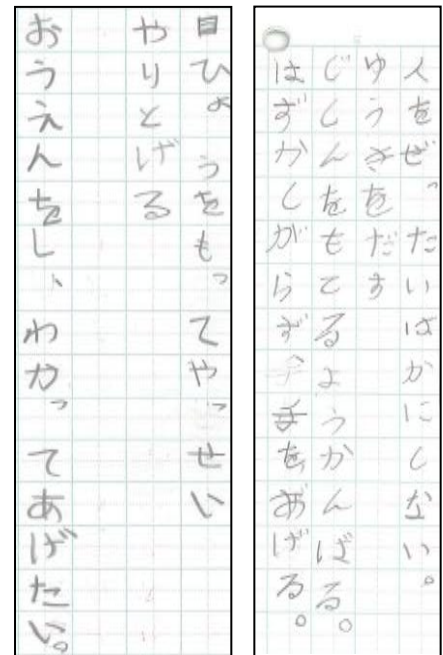 人をぜったいばかにしない。
ゆうきをだす
じしんをもてるようかんばる。
はずかしがらず手をあげる。
目ひょうをもってやっせい
やりとげる
おうえんをし、わかってあげたい。